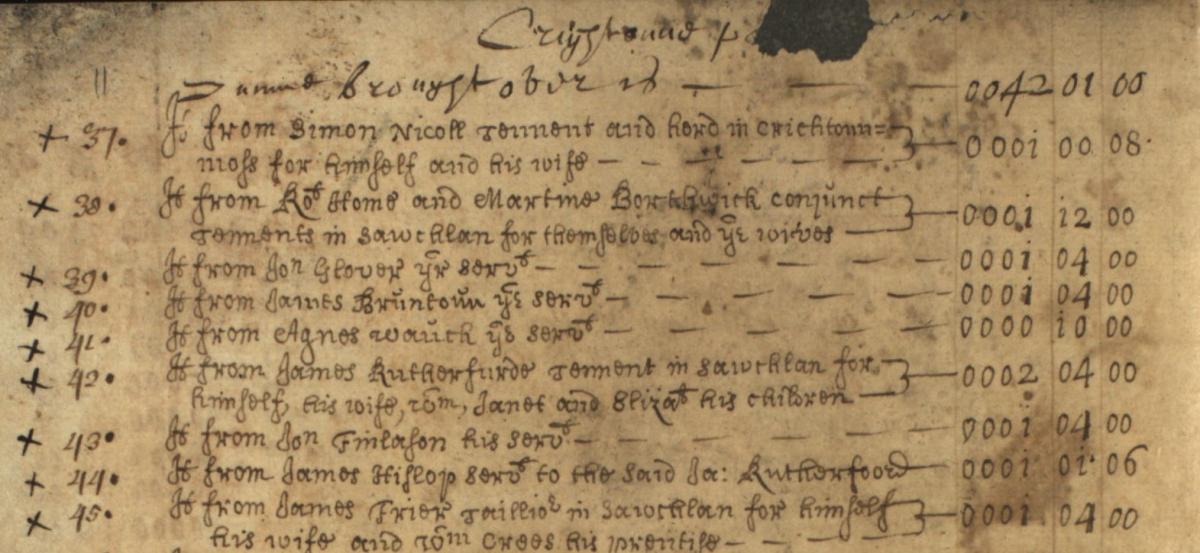 Crightoune p
Summe brought over is — — — 0042 01 00
+ 37. It from Simon Nicoll Tennent and herd in Crichtoun=
moss for himself and his wife — — — — 0001 00 08
+ 38. It from Rot Home and Martine Borthwick conjunct
Tennents in Sawchlan for themselves and yr wives — 0001 12 00
+ 39. It from Jon Glover yr servt — — — — 0001 04 00
+ 40. It from James Bruntoun yr servt — — — — 0001 04 00
+ 41. It from Agnes Wauch yr servt — — — — 0000 10 00
+ 42. It from James Rutherfurde Tennent in Sawchlan for
himself, his wife, Wm, Janet and Elizat his children — 0002 04 00
+ 43. It from Jon Finlason his servt — — — — 0001 04 00
+ 44. It from James Hislop servt to the said Ja: Rutherfoord — 0001 01 06
+ 45. It from James Frier Taillior in Sawchlan for himself — 0001 04 00
his wife and Wm Crees his prentise — —